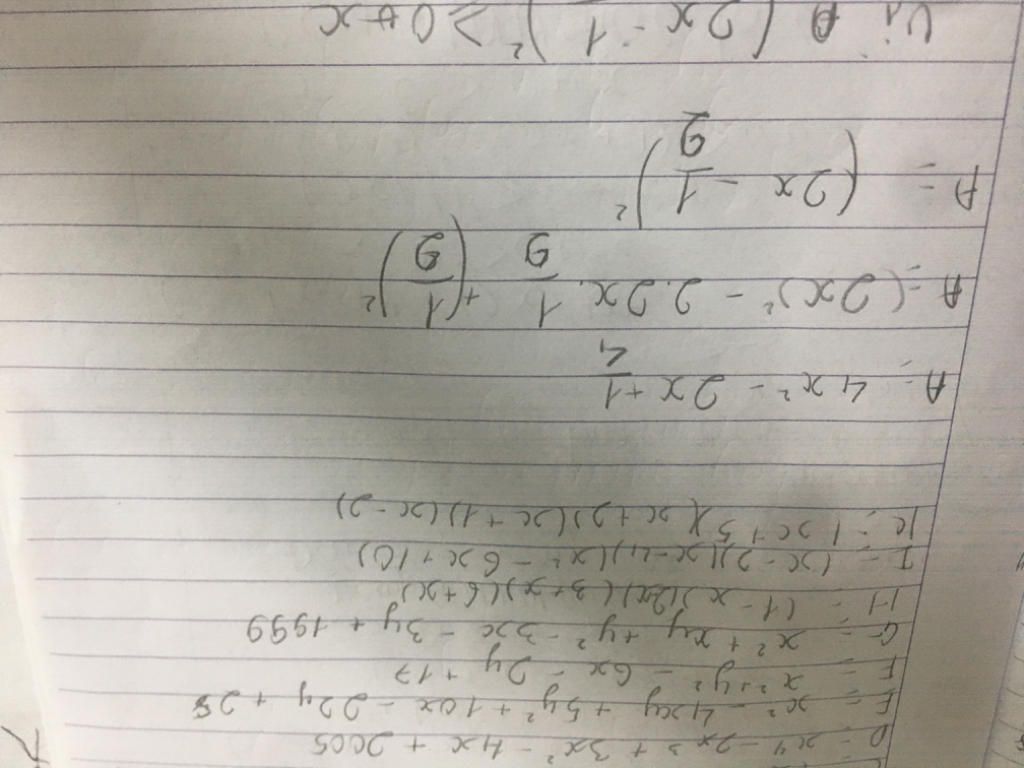 D = x⁴ - 2x³ + 3x² - 4x + 2005
E = x² - 4xy + 5y² + 10x - 22y + 28
F = x² + y² - 6x - 2y + 17
G = x² + xy + y² - 3x - 3y + 1999
H = (1 - x)(2x)(3 + x)(6 + x)
I = (x - 2)(x - 4)(x² - 6x + 10)
K = 1x + 5)(x + 2)(x + 1)(x - 2)
A = 4x² - 2x + 1/4
A = (2x)² - 2.2x. 1/2 + (1/2)²
A = (2x - 1/2)²
Vì (2x - 1 )² ≥ 0 ∀ x